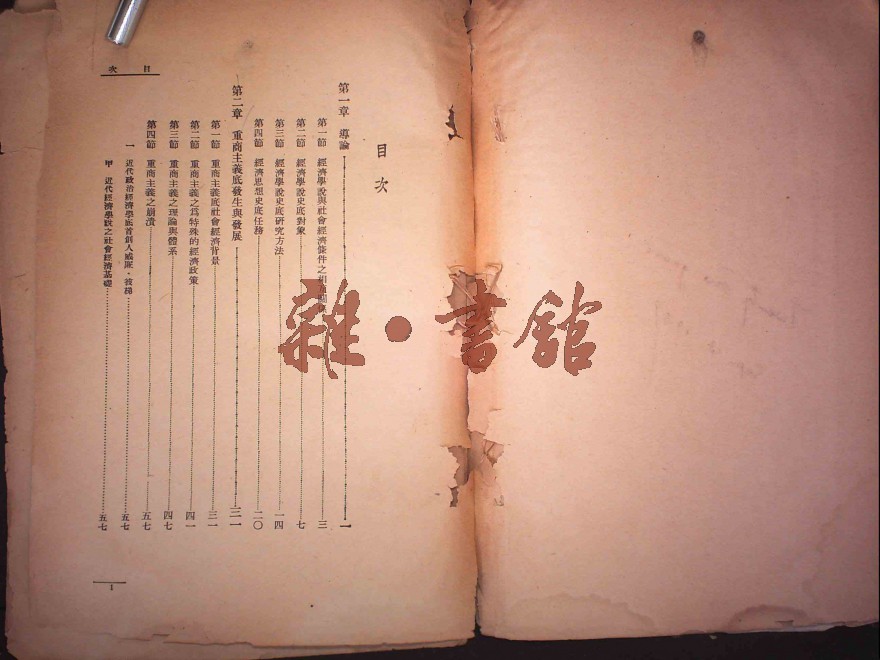 目次
第一章 導論 一
第一節 經濟學說與社會經濟條件之相 三
第二節 經濟學說史底對象 七
第三節 經濟學說史底研究方法 一四
第四節 經濟思想史底任務 二〇
第二章 重商主義底發生與發展 三一
第一節 重商主義底社會經濟背景 三一
第二節 重商主義之爲特殊的經濟政策 四一
第三節 重商主義之理論與體系 四七
第四節 重商主義之崩潰 五七
一 近代政治經濟學底首創人威廉・彼梯 五七
甲 近代經濟學說之社會經濟基礎 五七
目次
1
雜・書館